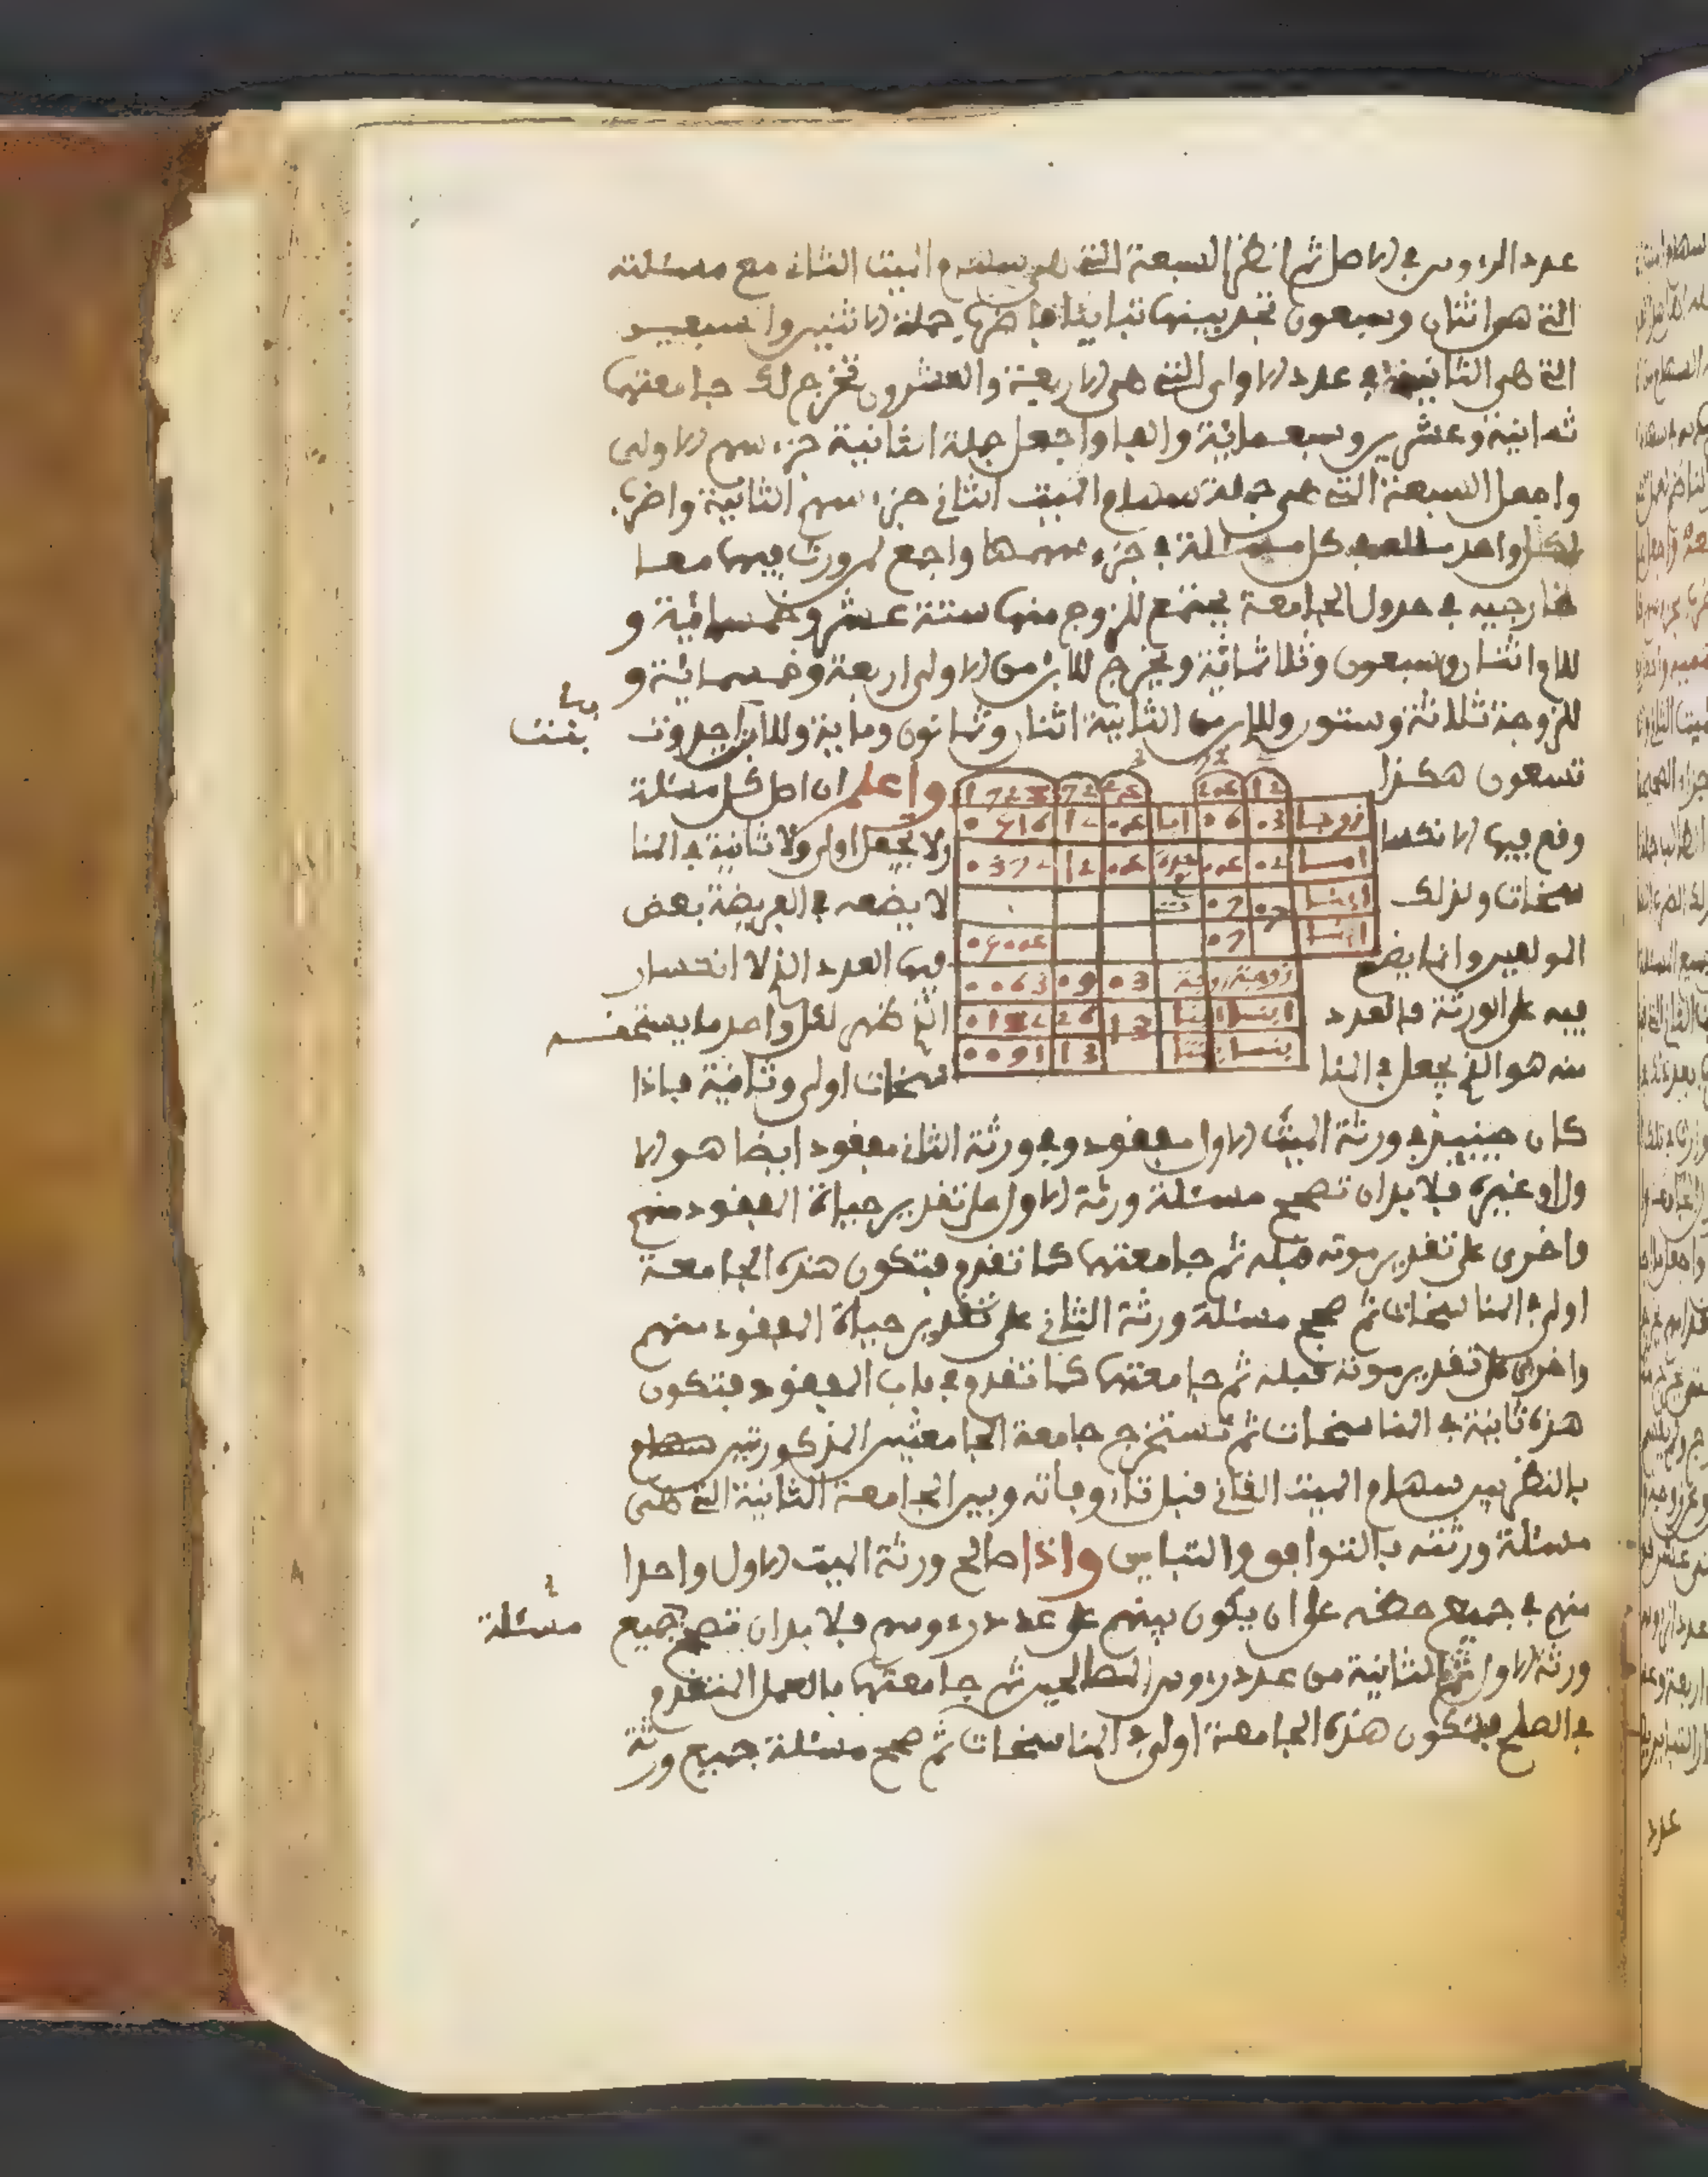 عدد الرءوس في الاصل ثم انظر السبعة التي هي سهام الميت الثاني مع مسئلته
التي هي اثنتان وسبعون تجد بينهما تباينا فاضرب جملة الاثنين والسبعين
التي هي الثانية في عدد الاولى التي هي الاربعة والعشرون تخرج لك جامعتهما
ثمانية وعشرين وسبعمائة والفا واجعل جملة الثانية جزء سهم الاولى
واجعل السبعة التي هي جملة سهام الميت الثاني جزء سهم الثانية واضرب
لكل واحد في كل مسئلة في جزء سهمها واجمع لمن ورث فيهما معا
خارجيه في جدول الجامعة يجتمع للزوج منها ستة عشر وخمسمائة و
للام اثنان وسبعون وثلاثمائة ويخرج للابن من الاولى اربعة وخمسمائة و
للزوجة ثلاثة وستون وللابن من الثانية اثنان وثمانون وماية وللابنة احد وت
بنت
تسعون هكذا
واعلم ان اصل كل مسئلة
1728 72 24 24 12
زوجا 03 06 اما 04 12 0516
وقع فيها الانكسا
ولا يجعل اولى ولا ثانية في المنا
اما 02 04 جدة 04 12 0372
سخات ولذلك
لا يضعه في الفريضة بعض
ابنا 07 07 ت
المولفين وانما يضع
فيها العدد الذي لا انكسار
ابنا 07 0504
زوجة زوجة 03 09 0063
فيه على الورثة فالعدد
الذي ظهر لكل واحد ما يستحقه
ابنا ابنا 13 26 0182
منه هو الذي يجعل في المنا
سخات اولى وثانية فاذا
بنتا بنتا 13 0091
كان حينئذ في ورثة الميت الاول مفقود وفي ورثة الثاني مفقود ايضا هو الا
ول او غيره فلا بد ان تصحح مسئلة ورثة الاول على تقدير حياة المفقود منهم
واخرى على تقدير موته قبله ثم جامعتهما كما تقدم فتكون هذه الجامعة
اولى في المناسخات ثم صحح مسئلة ورثة الثاني على تقدير حياة المفقود منهم
واخرى على تقدير موته قبله ثم جامعتهما كما تقدم في باب المفقود فتكون
هذه ثانية في المناسخات ثم تستخرج جامعة الجامعتين المذكورتين سهام
بالنظر بين سهام الميت الثاني قبل وفاته وبين الجامعة الثانية التي هي
مسئلة ورثته بالتوافق والتباين واذا صالح ورثة الميت الاول واحدا
منهم في جميع حظه على ان يكون بينهم على عدد رءوسهم فلا بد ان تصحح جميع
مسئلة
ورثة الاول ثم الثانية من عدد رءوس المصالحين ثم جامعتهما بالعمل المتقدم
في الصلح فتكون هذه الجامعة اولى في المناسخات ثم صحح مسئلة جميع ورثة